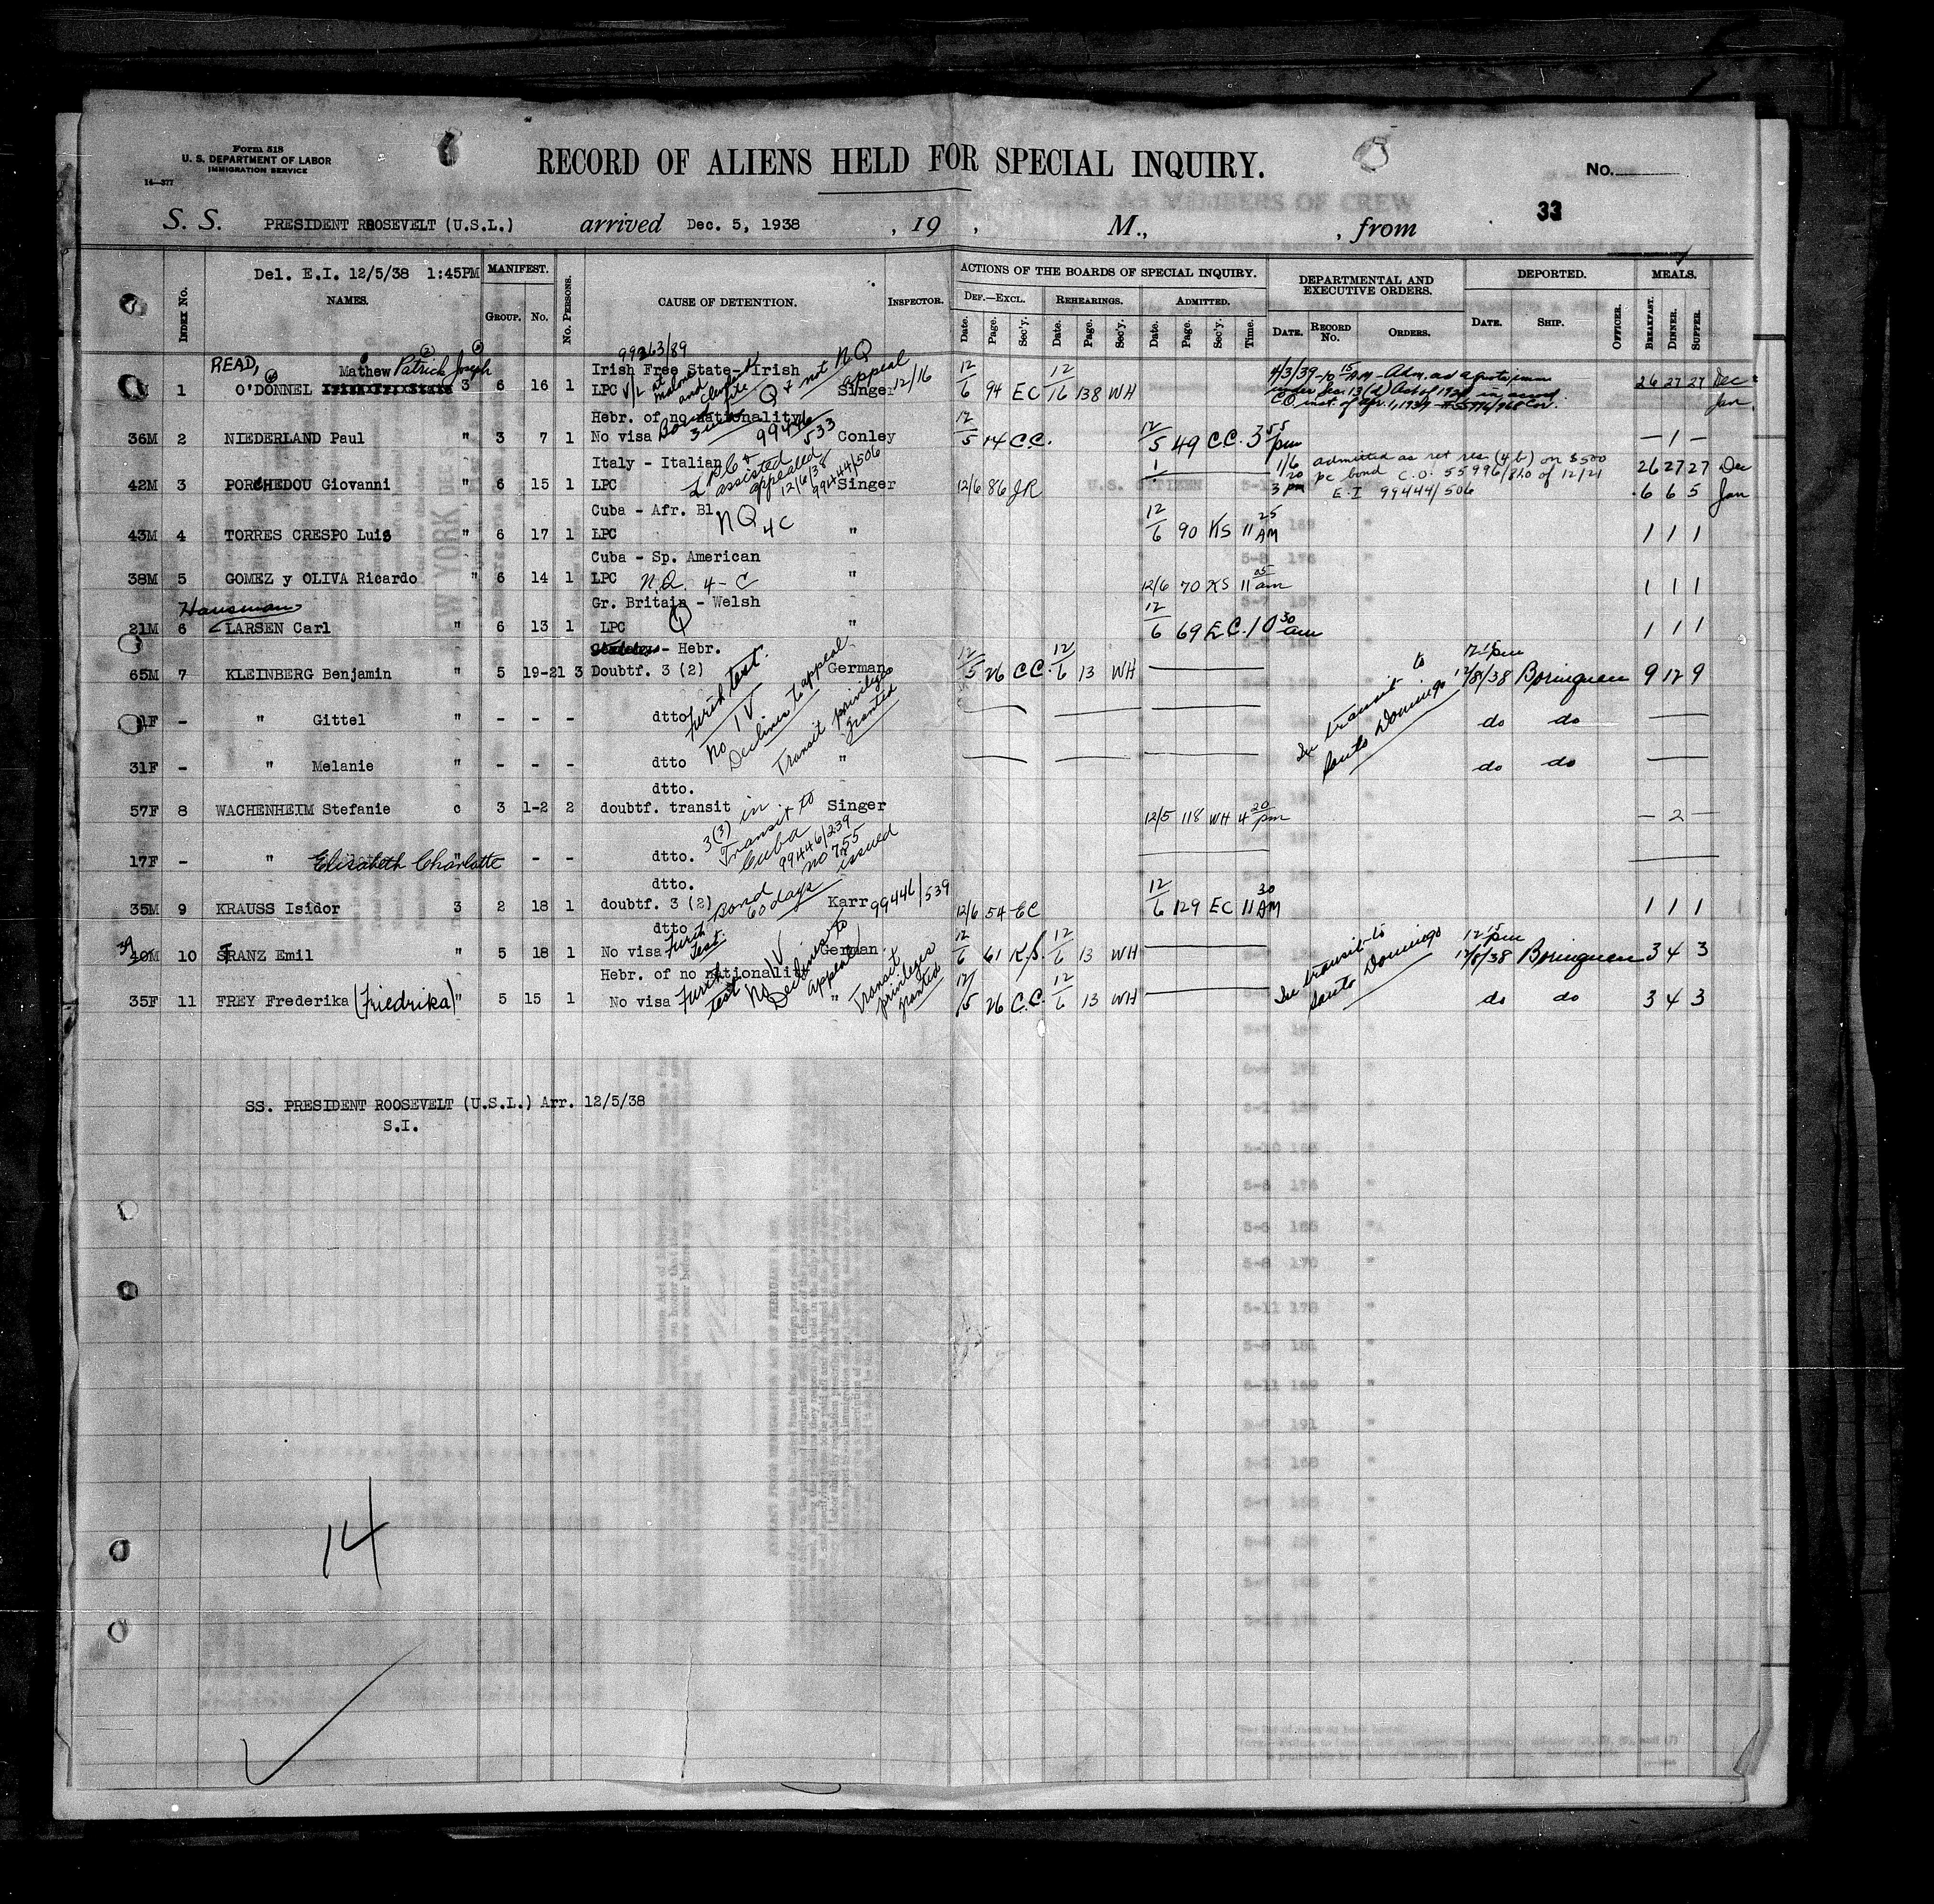 Form 518
U. S. DEPARTMENT OF LABOR
IMMIGRATION SERVICE
14—377
RECORD OF ALIENS HELD FOR SPECIAL INQUIRY.
No.
33
S. S. PRESIDENT ROOSEVELT (U.S.L.) arrived Dec. 5, 1938 , 19 , M., , from
Del. E.I. 12/5/38 1:45PM
INDEX NO. NAMES. MANIFEST. GROUP. NO. NO. PERSONS. CAUSE OF DETENTION. INSPECTOR.
ACTIONS OF THE BOARDS OF SPECIAL INQUIRY.
DEF.—EXCL. REHEARINGS. ADMITTED.
Date. Page. Sec'y. Date. Page. Sec'y. Date. Page. Sec'y. Time.
DEPARTMENTAL AND EXECUTIVE ORDERS.
DATE. RECORD NO. ORDERS.
DEPORTED.
DATE. SHIP. OFFICER.
MEALS.
BREAKFAST. DINNER. SUPPER.
99263/89
READ, Mathew Patrick Joseph Irish Free State- Irish
1 O'DONNEL 3 6 16 1 LPC Q + not NQ Appeal Singer 12/16 12/6 94 EC 12/16 138 WH 4/3/39-10 15 AM- Adm. as a quota imm 26 27 27 Dec
Jan
Hebr. of no nationality
36M 2 NIEDERLAND Paul " 3 7 1 No visa 99446/533 Conley 12/5 14 C.C. 12/5 49 C.C. 3 55 pm — 1 —
Italy - Italian
42M 3 PORCHEDOU Giovanni " 6 15 1 LPC assisted appealed 12/6/38 99444/506 Singer 12/6 86 JR 1/6 admitted as ret res (4b) on $500 26 27 27 Dec
1/20 pc bond C.O. 55996/810 of 12/21
3 pm E.I 99444/506 6 6 5 Jan
Cuba - Afr. Bl
43M 4 TORRES CRESPO Luis " 6 17 1 LPC NQ 4C " 12/6 90 KS 11 25 AM 1 1 1
Cuba - Sp. American
38M 5 GOMEZ y OLIVA Ricardo " 6 14 1 LPC N.Q. 4-C " 12/6 70 KS 11 05 am 1 1 1
Hansman Gr. Britain - Welsh
21M 6 LARSEN Carl " 6 13 1 LPC Q " 12/6 69 E.C. 10 30 am 1 1 1
- Hebr.
65M 7 KLEINBERG Benjamin " 5 19-21 3 Doubtf. 3 (2) Furth test. German 12/5 26 C.C. 12/6 13 WH In transit to Santo Domingo 12 15 pm 12/8/38 Borinquen 9 12 9
1F - " Gittel " - - - dtto no IV Declines to appeal do do
31F - " Melanie " - - - dtto Transit privileges granted " do do
dtto.
57F 8 WACHENHEIM Stefanie c 3 1-2 2 doubtf. transit 3(3) in Transit to Cuba Singer 12/5 118 WH 4 20 pm — 2 —
17F - " Elizabeth Charlotte " - - dtto. 99446/239
dtto.
35M 9 KRAUSS Isidor 3 2 18 1 doubtf. 3 (2) Bond 60 days no 755 issued Karr 99446/539 12/6 54 EC 12/6 129 EC 11 30 AM 1 1 1
dtto
39 40M 10 FRANZ Emil " 5 18 1 No visa Furth test. no IV Declines to appeal German 12/6 61 K.S. 12/6 13 WH In transit to Santo Domingo 12 15 pm 12/8/38 Borinquen 3 4 3
Hebr. of no nationality
35F 11 FREY Frederika (Friedrika) " 5 15 1 No visa Furth test Transit privileges granted " 12/5 26 C.C. 12/6 13 WH do do 3 4 3
SS. PRESIDENT ROOSEVELT (U.S.L.) Arr. 12/5/38
S.I.
14